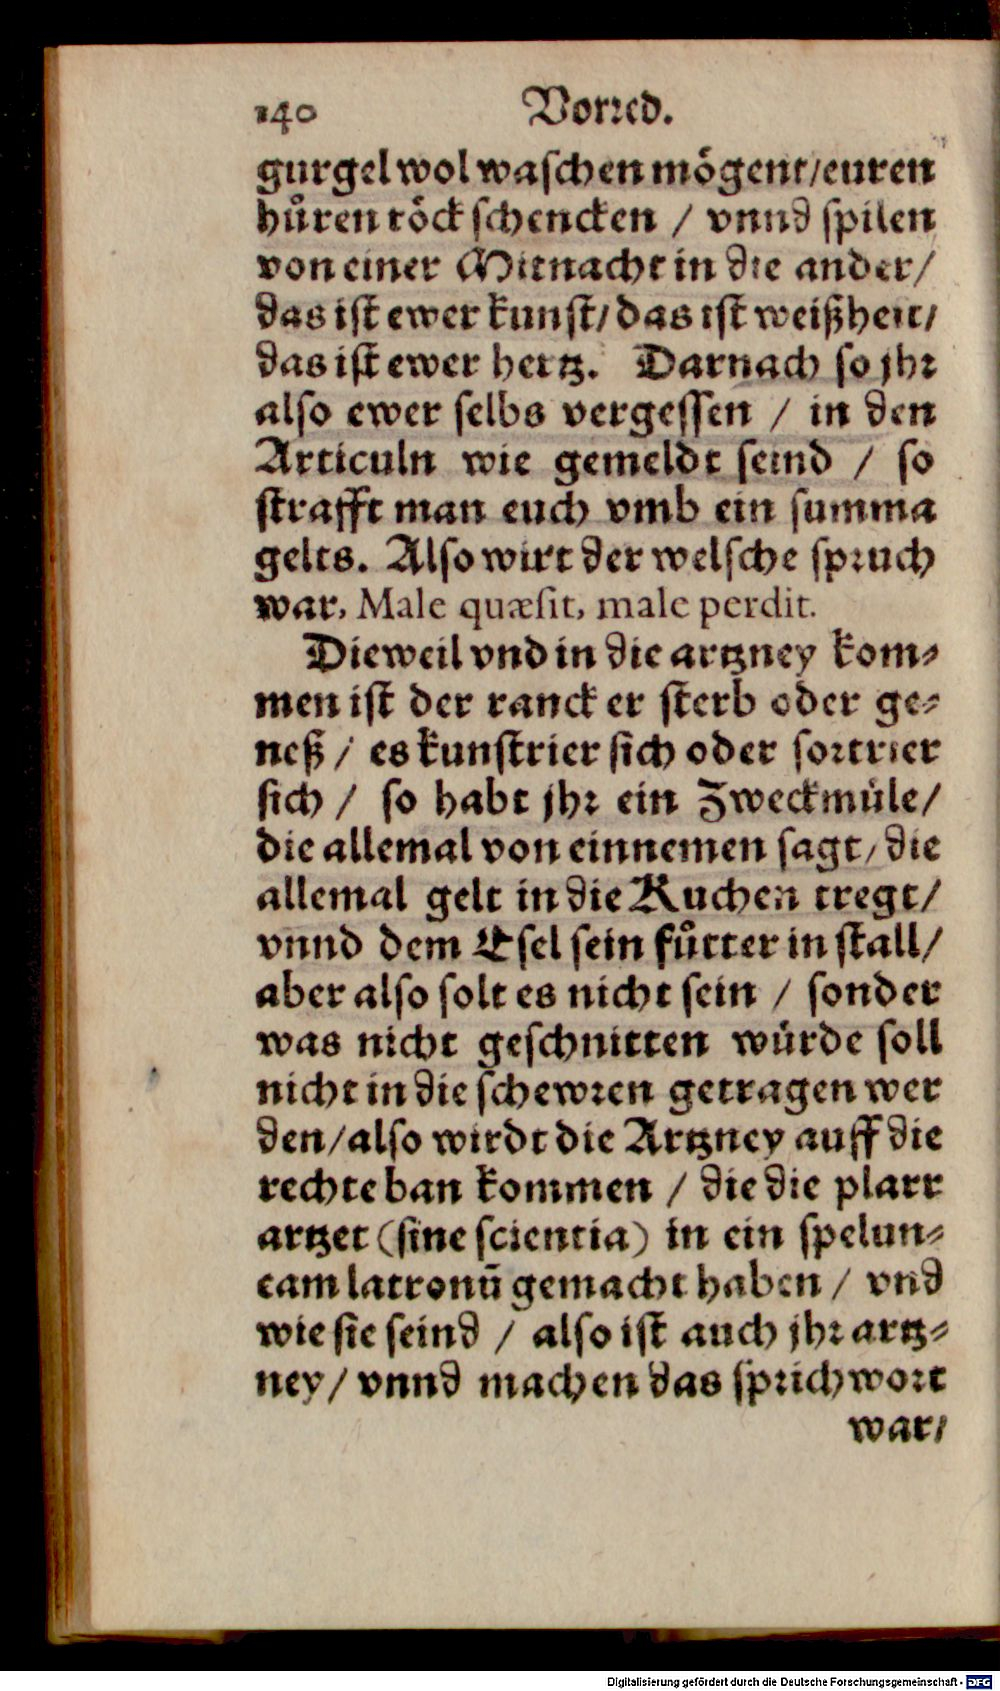 140 Vorred.
gurgel wol waschen mögent / euren
hůren röck schencken / vnnd spilen
von einer Mitnacht in die ander /
das ist ewer kunst / das ist weißheit /
das ist ewer hertz. Darnach so jhr
also ewer selbs vergessen / in den
Articuln wie gemeldt seind / so
strafft man euch vmb ein summa
gelts. Also wirt der welsche spruch
war, Male quæsit, male perdit.
Dieweil vnd in die artzney kom-
men ist der ranck er sterb oder ge-
neß / es kunstrier sich oder sortrier
sich / so habt jhr ein Zweckmüle /
die allemal von einnemen sagt / die
allemal gelt in die Kuchen tregt /
vnnd dem Esel sein fůtter in stall /
aber also solt es nicht sein / sonder
was nicht geschnitten würde soll
nicht in die schewren getragen wer
den / also wirdt die Artzney auff die
rechte ban kommen / die die plarr
artzet (sine scientia) in ein spelun-
cam latronū gemacht haben / vnd
wie sie seind / also ist auch jhr artz-
ney / vnnd machen das sprichwort
war /
Digitalisierung gefördert durch die Deutsche Forschungsgemeinschaft - DFG